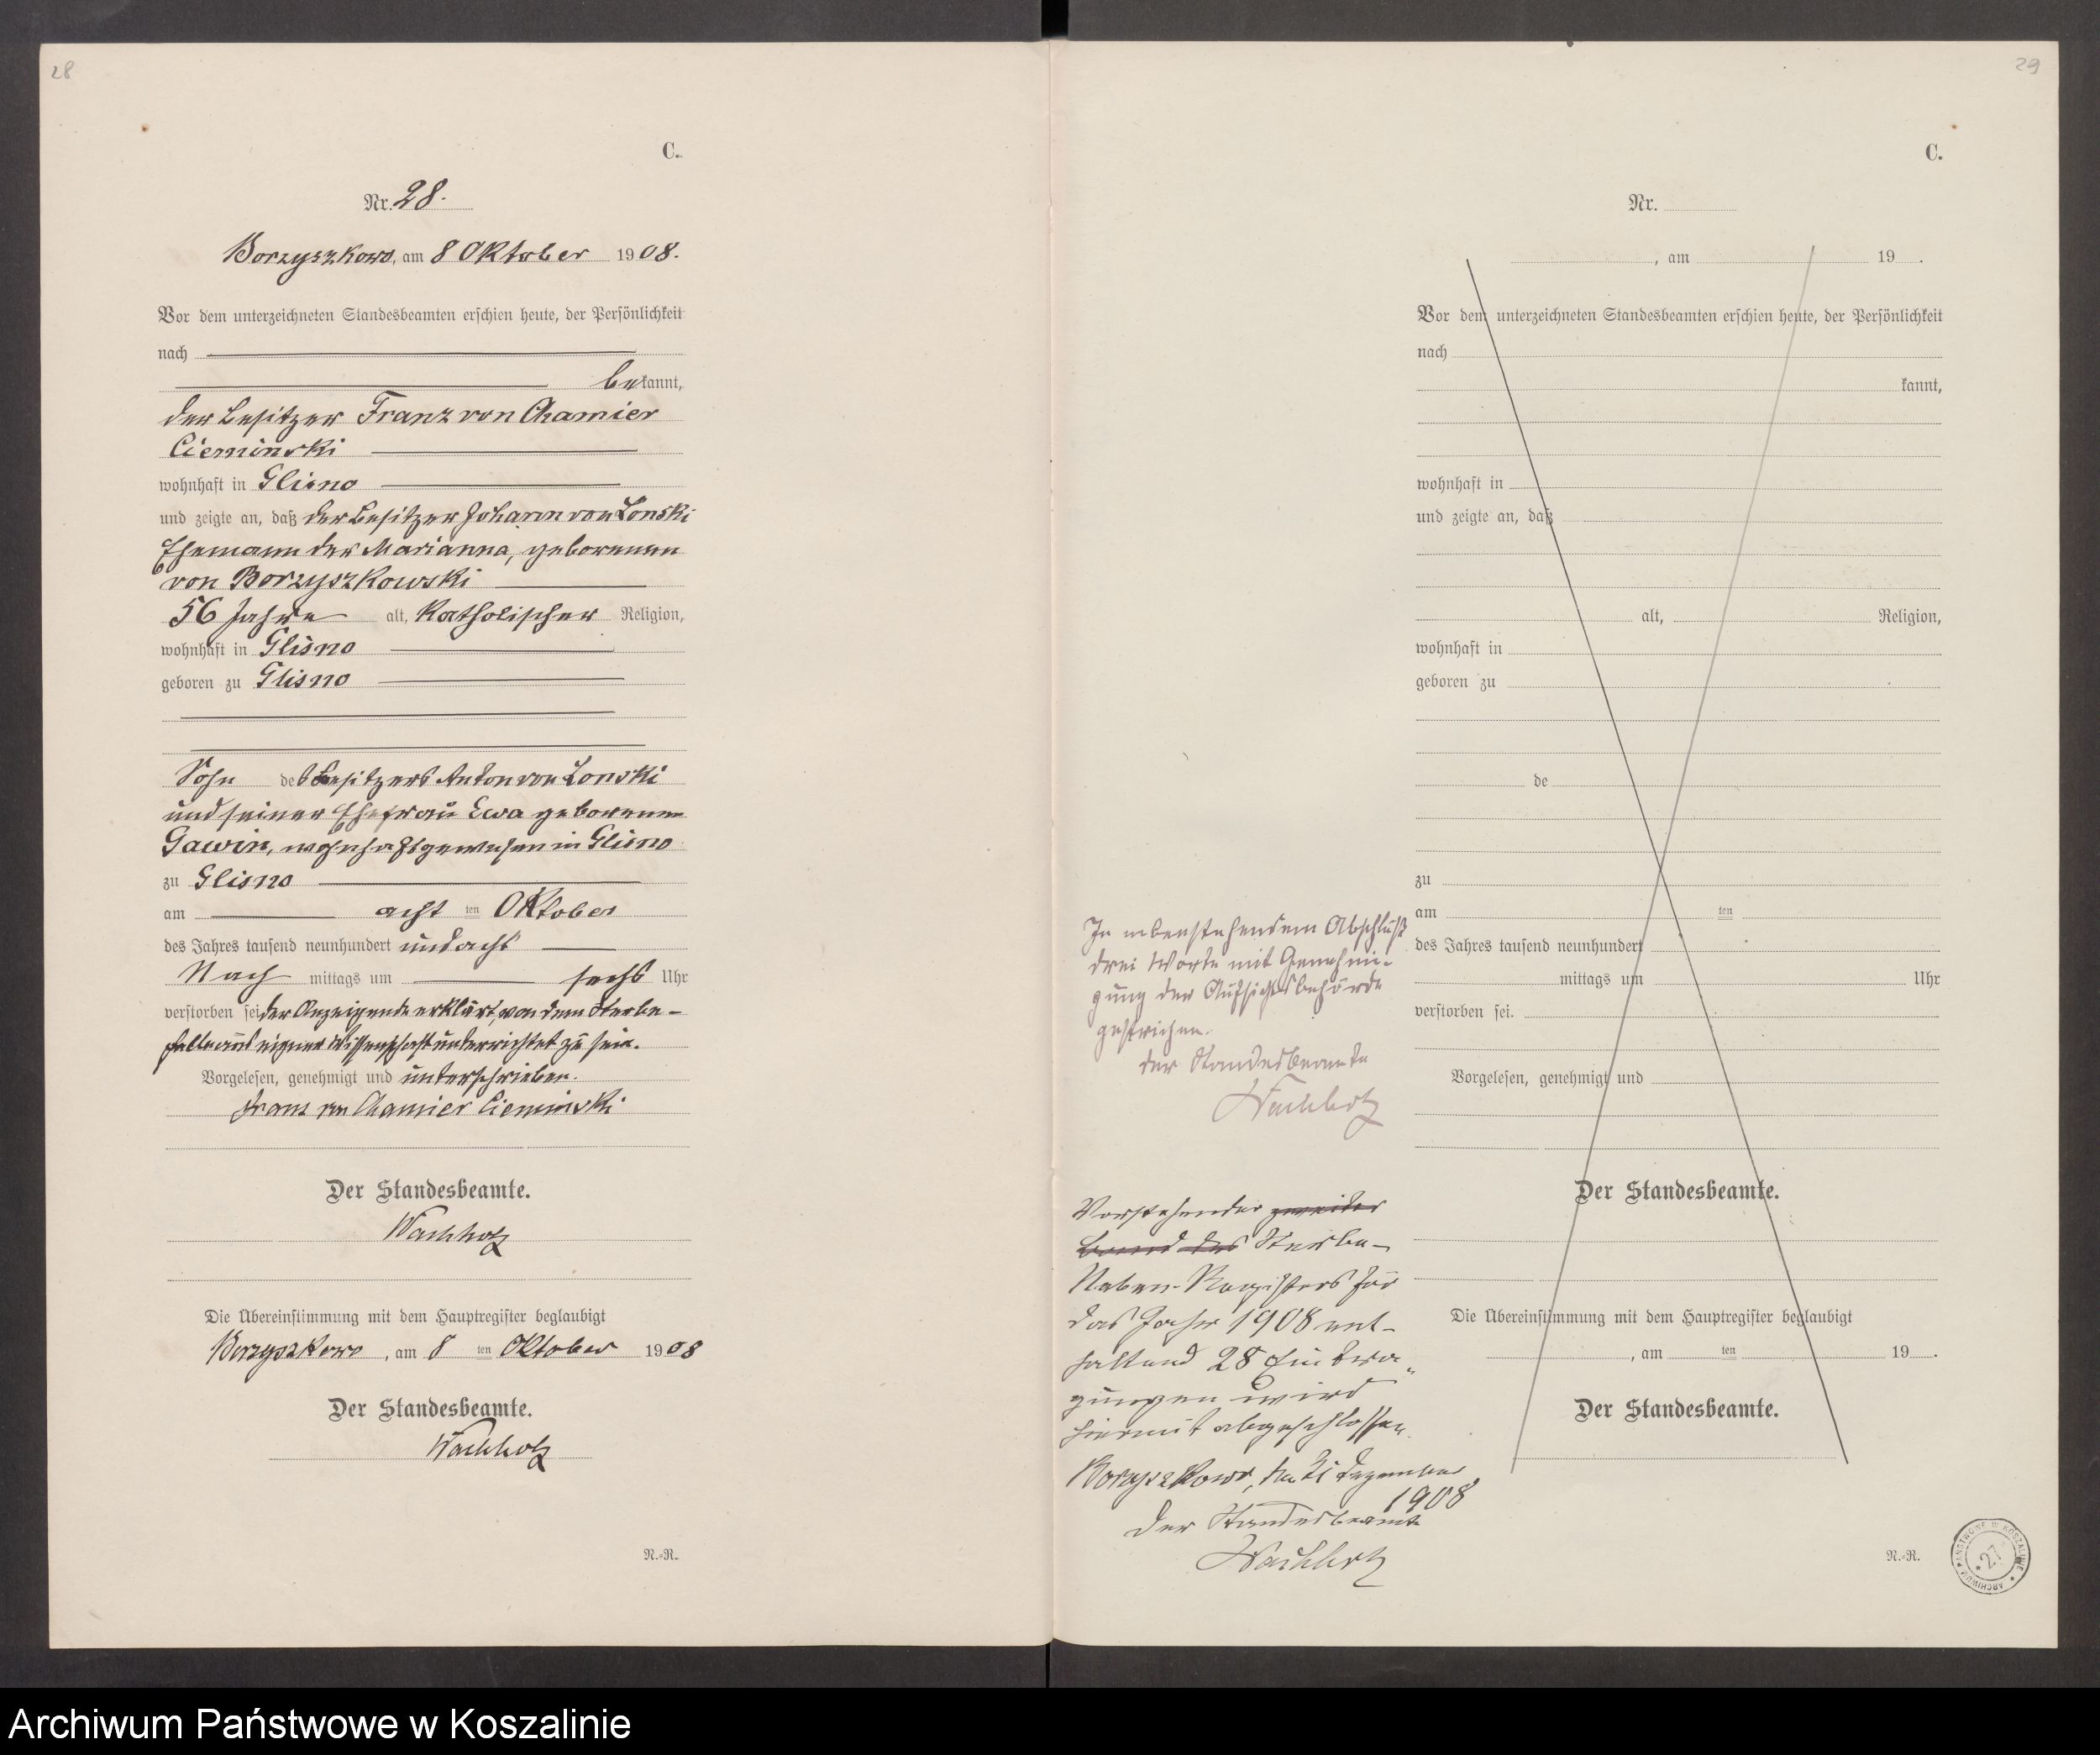 28
C.
Nr. 28.
Borzyszkowo, am 8 Oktober 1908.
Vor dem unterzeichneten Standesbeamten erschien heute, der Persönlichkeit
nach
bekannt,
der Besitzer Franz von Chamier
Cieminski
wohnhaft in Glisno
und zeigte an, daß der Besitzer Johann von Lonski
Ehemann der Marianna, geborenen
von Borzyszkowski
56 Jahre alt, katholischer Religion,
wohnhaft in Glisno
geboren zu Glisno
Sohn des Besitzers Anton von Lonski
und seiner Ehefrau Ewa geborenen
Gawin, wohnhaft gewesen in Glisno
zu Glisno
am acht ten Oktober
des Jahres tausend neunhundert und acht
Nach mittags um sechs Uhr
verstorben sei, der Anzeigende erklärt, von dem Sterbe-
falle aus eigner Wissenschaft unterrichtet zu sein.
Vorgelesen, genehmigt und unterschrieben.
Franz von Chamier Cieminski
Der Standesbeamte.
Wachholz
Die Übereinstimmung mit dem Hauptregister beglaubigt
Borzyszkowo, am 8 ten Oktober 1908
Der Standesbeamte.
Wachholz
N.-R.
29
C.
Nr.
, am 19 .
Vor dem unterzeichneten Standesbeamten erschien heute, der Persönlichkeit
nach
kannt,
wohnhaft in
und zeigte an, daß
alt, Religion,
wohnhaft in
geboren zu
de
zu
am ten
des Jahres tausend neunhundert
mittags um Uhr
verstorben sei.
Vorgelesen, genehmigt und
Der Standesbeamte.
Die Übereinstimmung mit dem Hauptregister beglaubigt
, am ten 19 .
Der Standesbeamte.
N.-R.
In nebenstehendem Abschluß
drei Worte mit Genehmi-
gung der Aufsichtsbehörde
gestrichen.
der Standesbeamte
Wachholz
Vorstehender zweiter
Band des Sterbe-
Neben-Registers für
das Jahr 1908 ent-
haltend 28 Eintra-
gungen wird
hiermit abgeschlossen.
Borzyszkowo, den 31 Dezember
1908
Der Standesbeamte
Wachholz
ARCHIWUM PAŃSTWOWE W KOSZALINIE
27
Archiwum Państwowe w Koszalinie